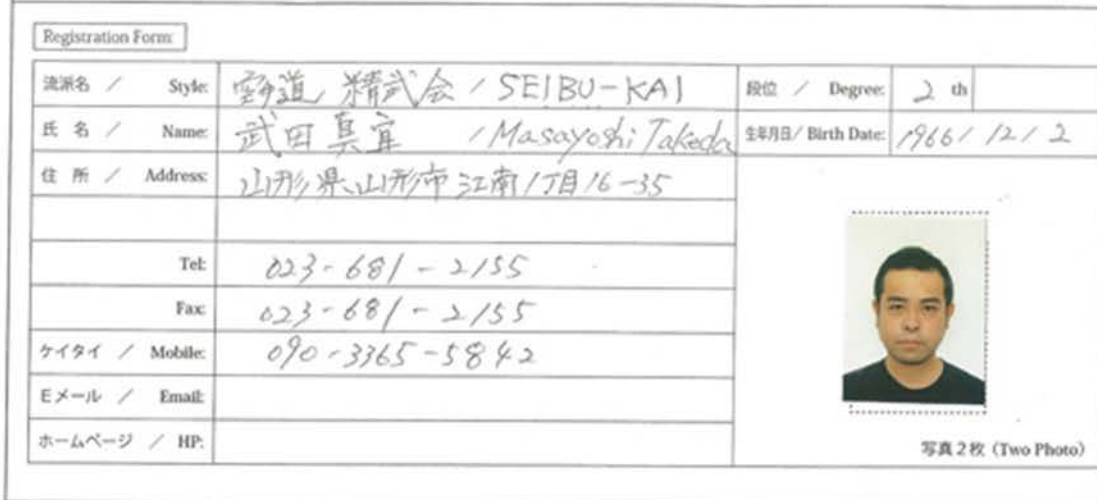 Registration Form:
流派名 / Style: 道 精武会 / SEIBU-KAI
段位 / Degree: 2 th
氏 名 / Name: 武田真宜 / Masayoshi Takeda
生年月日/ Birth Date: 1966 / 12 / 2
住 所 / Address: 山形県山形市江南1丁目16-35
Tel: 023-681-2155
Fax: 023-681-2155
ケイタイ / Mobile: 090-3365-5842
Eメール / Email:
ホームページ / HP:
写真2枚 (Two Photo)